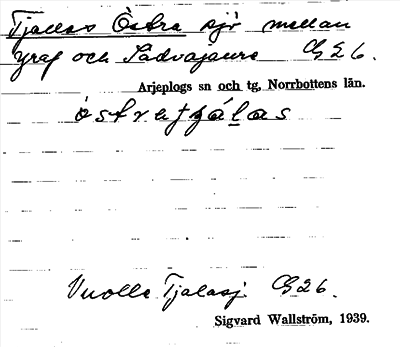 Tjallas Östra sjö mellan
Yraf och Sädvajaure G26.
Arjeplogs sn och tg, Norrbottens län.
östra tjálas
Vuolle Tjalasj. G26.
Sigvard Wallström, 1939.